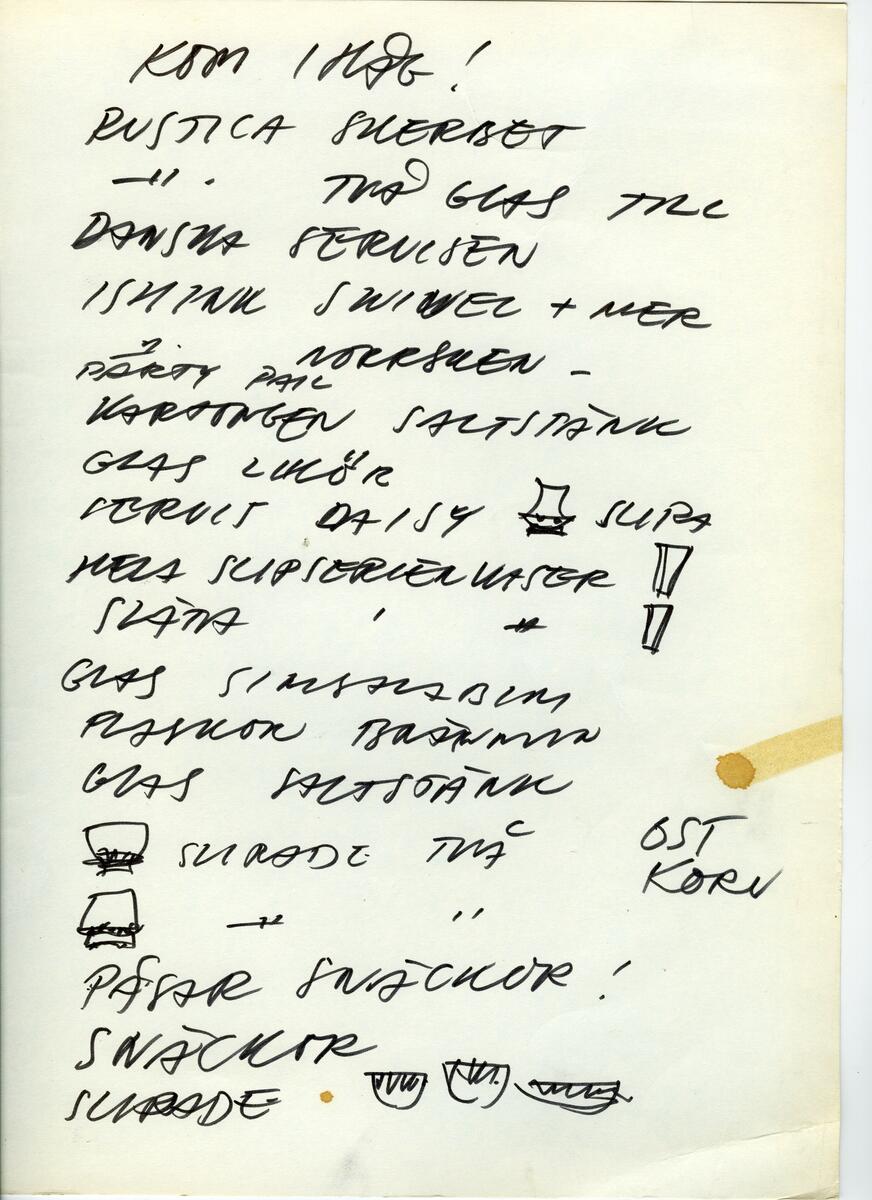 KOM IHÅG!
RUSTICA SHERBET
-"- TVÅ GLAS TILL
DANSKA SERVISEN
ISHINK SWIVEL + MER
-"- NORRSKEN -
PARTY PAIL
KARTONGEN SALTSTÄNK
GLAS LIKÖR
SERVIS DAISY SLIPA
HELA SLIPSERIEN VASER
SLÄTA ' -"-
GLAS SIMSALABIM
FLASKOR BRÄNNVIN
GLAS SALTSTÄNK
SLIPADE TVÅ
OST
KORV
-"- "
PÅSAR SNÄCKOR!
SNÄCKOR
SLIPADE